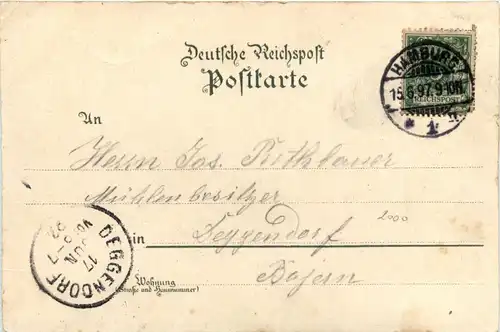 Deutsche Reichspost
Postkarte
HAMBURG
15.6.97. 9-10N.
* 1
REICHSPOST
An
Herrn Jos.
Mühlenbesitzer
in Deggendorf
2000
Bajern
Wohnung
(Straße und Hausnummer)
DEGGENDORF
17
JUN
97